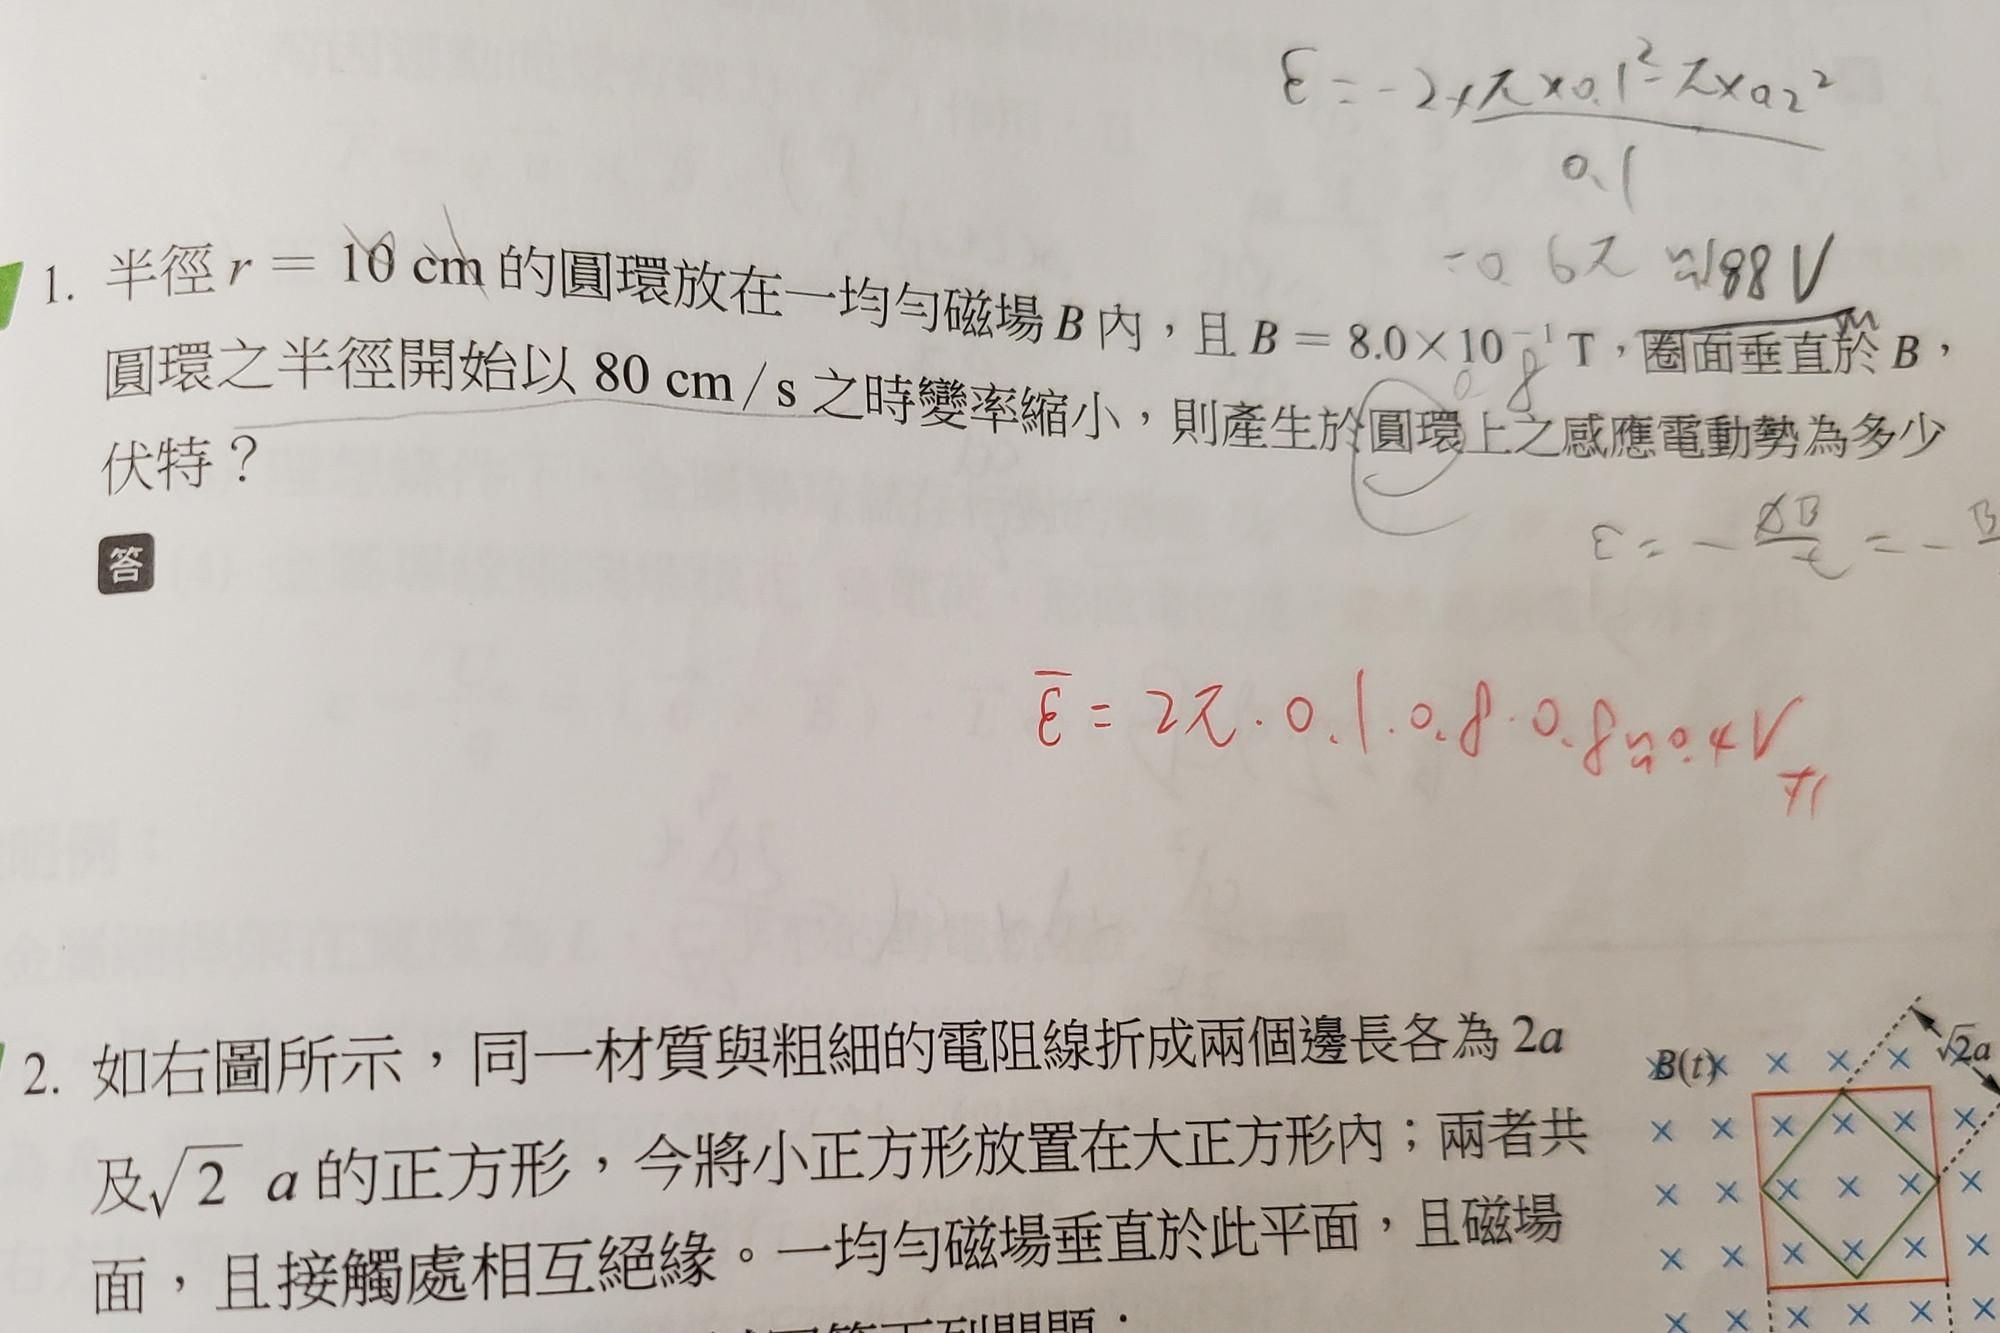 ε = -2 × π×0.1² - π×0.2²
0.1
= 0.6π ≈ 1.88 V
1. 半徑 r = 10 cm 的圓環放在一均勻磁場 B 內，且 B = 8.0×10⁻¹ T，圈面垂直於 B，
0.8
圓環之半徑開始以 80 cm / s 之時變率縮小，則產生於圓環上之感應電動勢為多少
伏特？
答
ε = -
ε̅ = 2π·0.1·0.8·0.8≈0.4V
2. 如右圖所示，同一材質與粗細的電阻線折成兩個邊長各為 2a
及√2 a 的正方形，今將小正方形放置在大正方形內；兩者共
面，且接觸處相互絕緣。一均勻磁場垂直於此平面，且磁場
B(t)
√2a